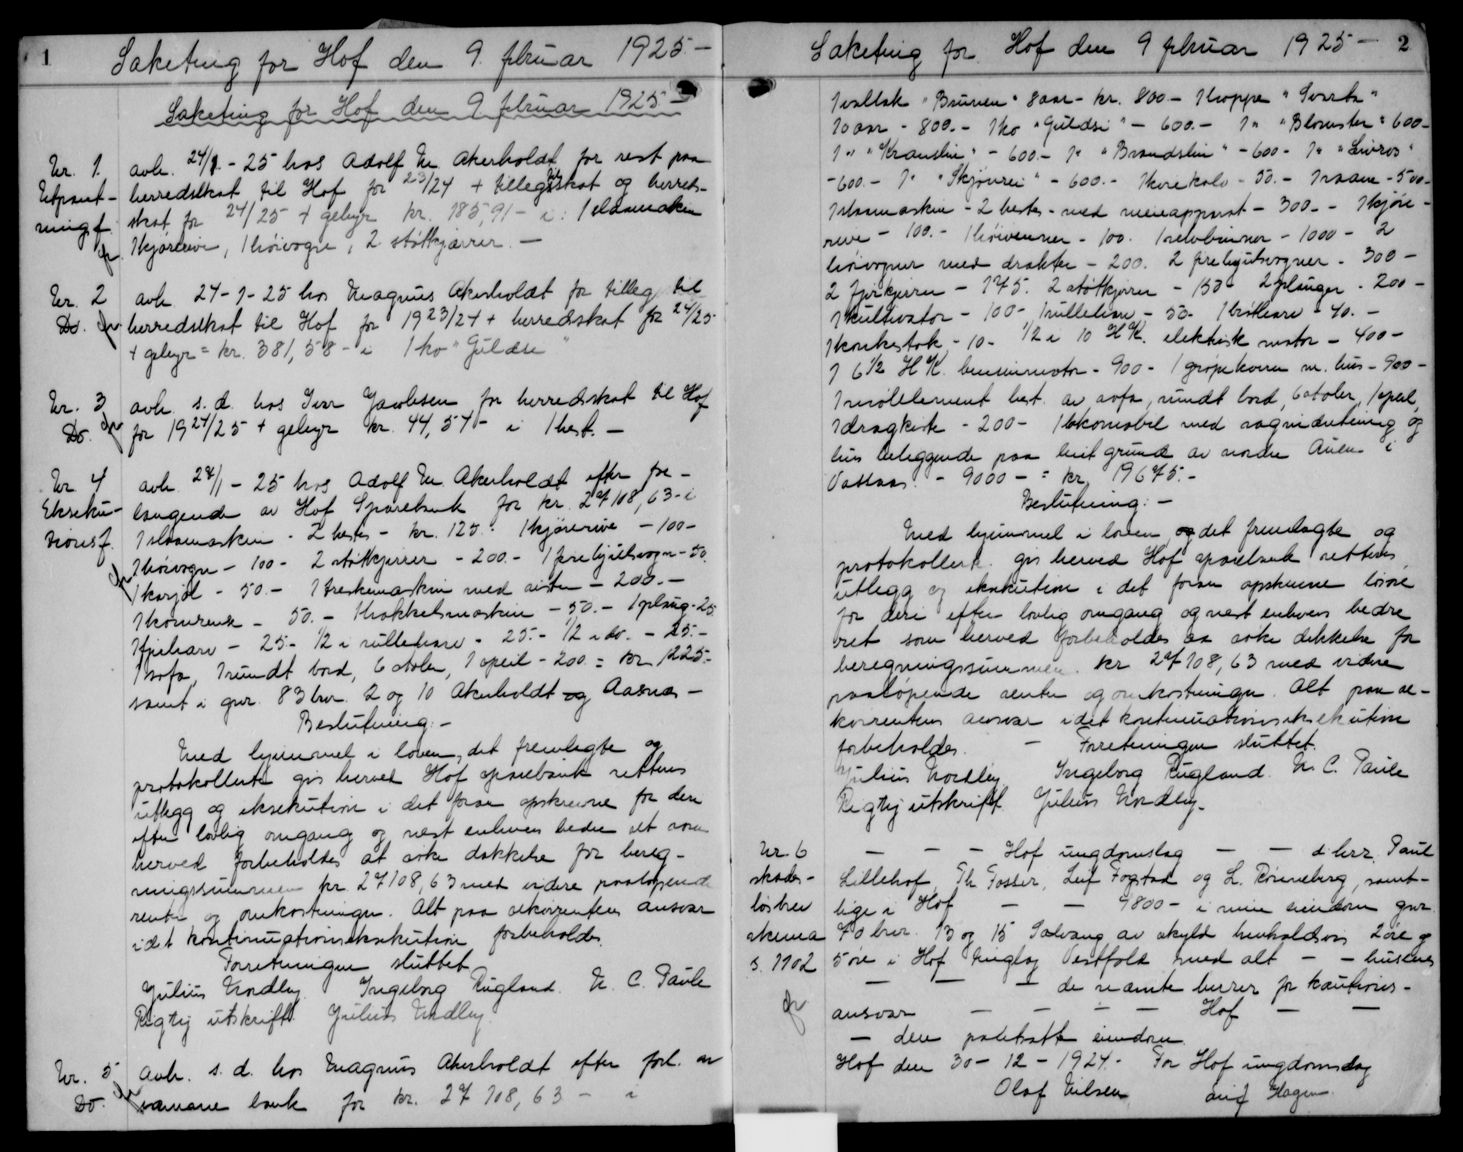 1
Saketing for Hof den 9. februar 1925 –
Saketing for Hof den 9 februar 1925 –
Nr. 1
Utpant-
ningsf.
avh. 24/1 - 25 hos Adolf M Akerholdt for rest paa
herredskat til Hof for 23/24 + tillegsskat og herreds-
skat for 24/25 + gebyr kr. 185,91 - i: 1 slaamaskin
1 kjørerive, 1 høivogn, 2 støtkjærrer. –
Nr. 2
Do.
avh 24-1-25 hos Magnus Akerholdt for tilleg til
herredskat til Hof for 1923/24 + herredskat for 24/25
+ gebyr = kr. 381,58 - i 1 ko "Guldsi"
Nr. 3
Do.
avh. s.d. hos Ivar Jacobsen for herredskat til Hof
for 1924/25 + gebyr kr. 44,54 - i 1 hest. –
Nr 4
Ekseku-
tionsf.
avh. 24/1 - 25 hos Adolf M Akerholdt efter for-
langende av Hof Sparebank for kr. 27108,63 - i
1 slaamaskin - 2 hestes - kr. 125. 1 kjørerive - 100 -
1 høivogn - 100 - 2 støtkjærrer - 200. - 1 firehjulsvogn - 50.
1 karjol - 50. - 1 treskemaskin med - 200. -
1 kornrensk - 50. - 1 hakkelsmaskin - 50. - 1 plaug - 25
1 fjærharv - 25 - 1/2 i rulleharv - 25. - 1/2 i do. - 25. -
1 sofa, 1 rundt bord, 6 stoler, 1 speil - 200 = kr 1225 -
samt i gnr. 83 bnr. 2 og 10 Akerholdt og Aasnes -
Beslutning: -
Med hjemmel i loven, det fremlagte og
protokollerte gis herved Hof sparebank rettens
utlegg og eksekution i det foran opskrevne for den
efter lovlig omgang og næst enhvers bedre ret som
herved forbeholdes at søke dækkelse for bereg-
ningssummen kr 27108,63 med videre paaløpende
renter og omkostninger. Alt paa rekvirentens ansvar
idet kontinuationseksekution forbeholdes.
Forretningen sluttet
Julius Nordby. Ingeborg Rugland. N. C. Paule
Rigtig utskrift Julius Nordby.
Nr. 5
Do.
avh. s.d. hos Magnus Akerholdt efter forl. av
samme bank for kr. 27 108,63 - i
2
Saketing for Hof den 9 februar 1925 –
1 vallak "Brunen" 8 aar - kr. 800 - 1 hoppe "Svarta"
10 aar - 800. - 1 ko "Guldsi" - 600. - 1 " "Blomster" 600 -
1 " "Kranslin" - 600. - 1 " "Brandslin" - 600 - 1 " "Livros"
- 600. - 1 " "Skjønrei" - 600. - 1 - 50. - - 500 -
1 slaamaskin - 2 hestes - med meieapparat - 300. - 1 kjøre-
rive - 100. - 1 høivender - 100. 1 selvbinder - 1000 - 2
høivogner med drakter - 200. 2 firehjulsvogner - 300 -
2 fjærkjærrer - 175. 2 støtkjærrer - 150 - 2 plauger - 200 -
1 kultivator - 100 - 1 rulleharv - 50 - 1 - 40. -
1 - 10 - 1/2 i 10 H.K. elektrisk motor - 400 -
1 6 1/2 H.K. bensinmotor - 900 - 1 grøpekværn m. hus - 900 -
1 best. av sofa, rundt bord, 6 stoler, 1 speil,
1 dragkiste - 200 - 1 lokomobil med sagindretning og
hus beliggende paa leiet grund av nordre Auen i
Vassaas - 9000 - = kr. 19675. -
Beslutning: -
Med hjemmel i loven, og det fremlagte og
protokollerte gis herved Hof sparebank rettens
utlegg og eksekution i det foran opskrevne løsøre
for den efter lovlig omgang og næst enhvers bedre
ret som herved forbeholdes at søke dækkelse for
beregningssummen kr 27108,63 med videre
paaløpende renter og omkostninger. Alt paa re-
kvirentens ansvar idet kontinuationseksekution
forbeholdes. - Forretningen sluttet.
Julius Nordby Ingeborg Rugland N. C. Paule
Rigtig utskrift Julius Nordby.
Nr. 6
skades-
løsbrev
skema
s. 1102
– – – Hof ungdomslag – – d herr. Paul
Lillehof, Th Fosser, Leif Fogstad og L. Rønneberg, samt-
lige i Hof – – 9800 - i min eiendom gnr
70 bnr. 13 og 15 Solvang av skyld henholdsvis 2 øre og
5 øre i Hof tinglag Vestfold med alt – – husenes
– – – de nævnte herrer for kautions-
ansvar – – – – Hof – –
– den pantsatte eiendom
Hof den 30 - 12 - 1924. For Hof ungdomslag
Olaf Nilsen Hagen